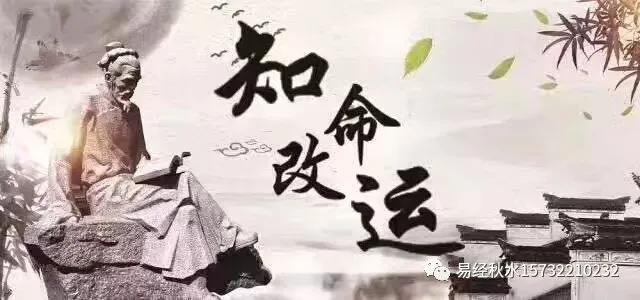 知命
改运
易经秋水15732210232